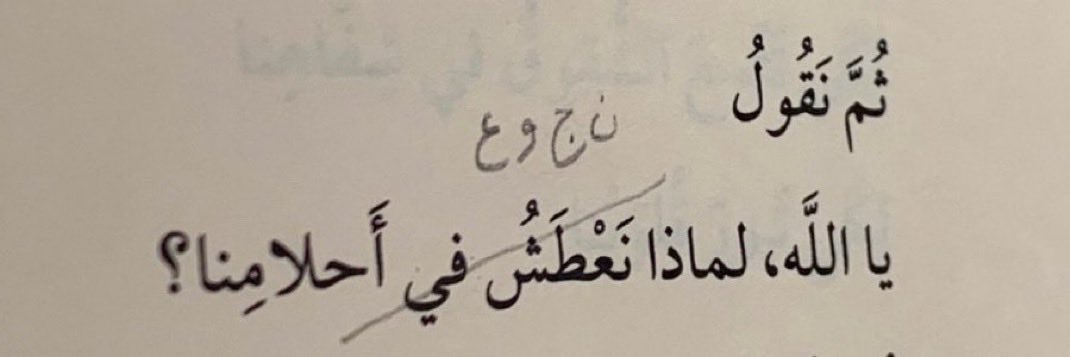 ثُمَّ نَقُولُ
ن ج و ع
يا اللَّه، لماذا نَعْطَشُ في أَحلامِنا؟